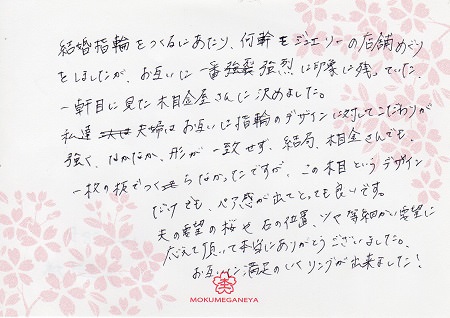 結婚指輪をつくるにあたり、何軒もジュエリーの店舗めぐり
をしましたが、お互いに一番強烈に印象に残っていた、
一軒目に見た木目金屋さんに決めました。
私達夫婦はお互いに指輪のデザインに対してこだわりが
強く、なかなか、形が一致せず、結局、木目金さんでも、
一枚の板でつくらなかったですが、この木目というデザイン
だけでも、ペア感が出てとっても良いです。
夫の要望の桜や石の位置、ツヤ等細かい要望に
応えて頂いて本当にありがとうございました。
お互いに満足のいくリングが出来ました！
MOKUMEGANEYA